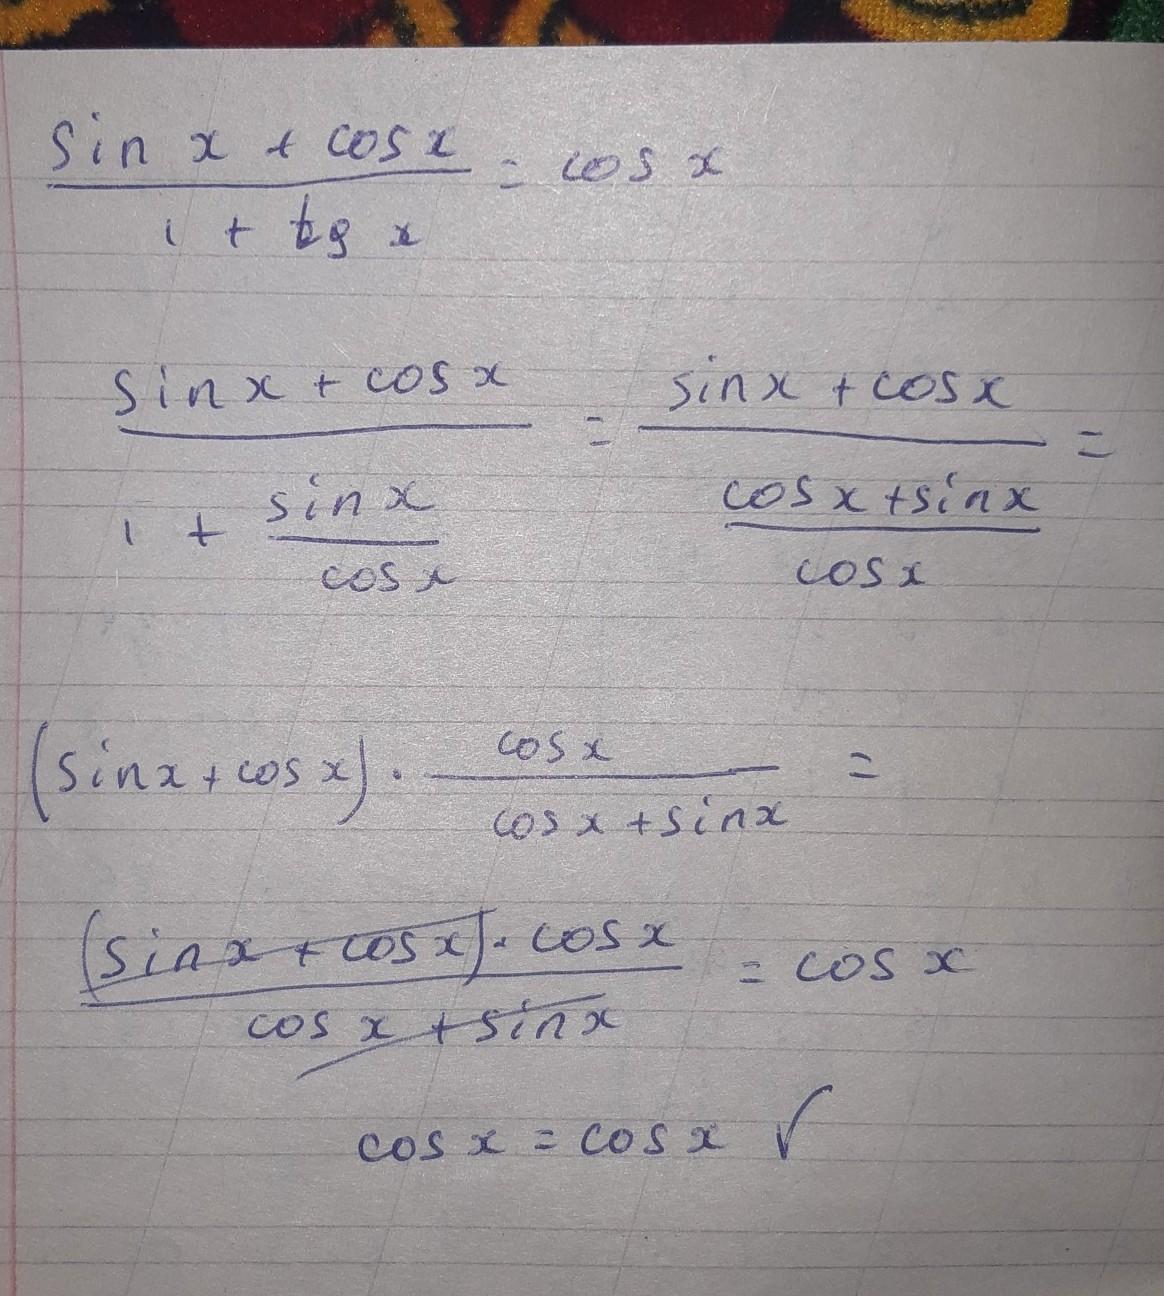 sin x + cos x / 1 + tg x = cos x
sin x + cos x / 1 + sin x / cos x = sin x + cos x / cos x + sin x / cos x =
(sin x + cos x) · cos x / cos x + sin x =
(sin x + cos x) · cos x / cos x + sin x = cos x
cos x = cos x ✓